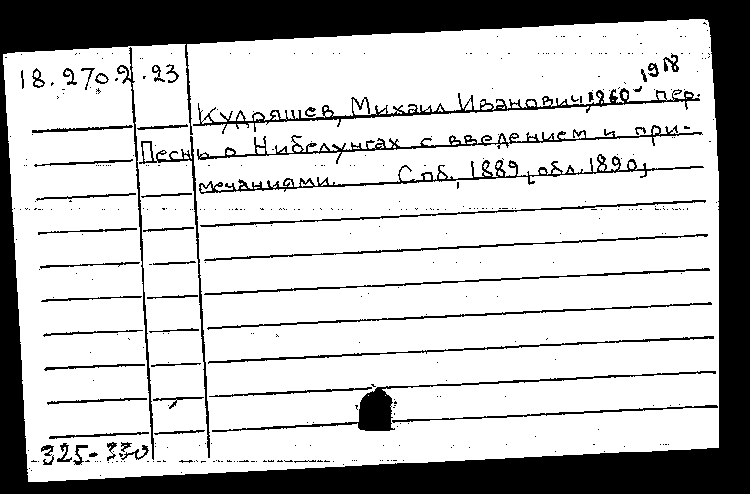 18.270.2.23
Кудряшев, Михаил Иванович, 1860-1918 пер.
Песнь о Нибелунгах с введением и при-
мечаниями. Спб., 1889, [обл. 1890]
325-330